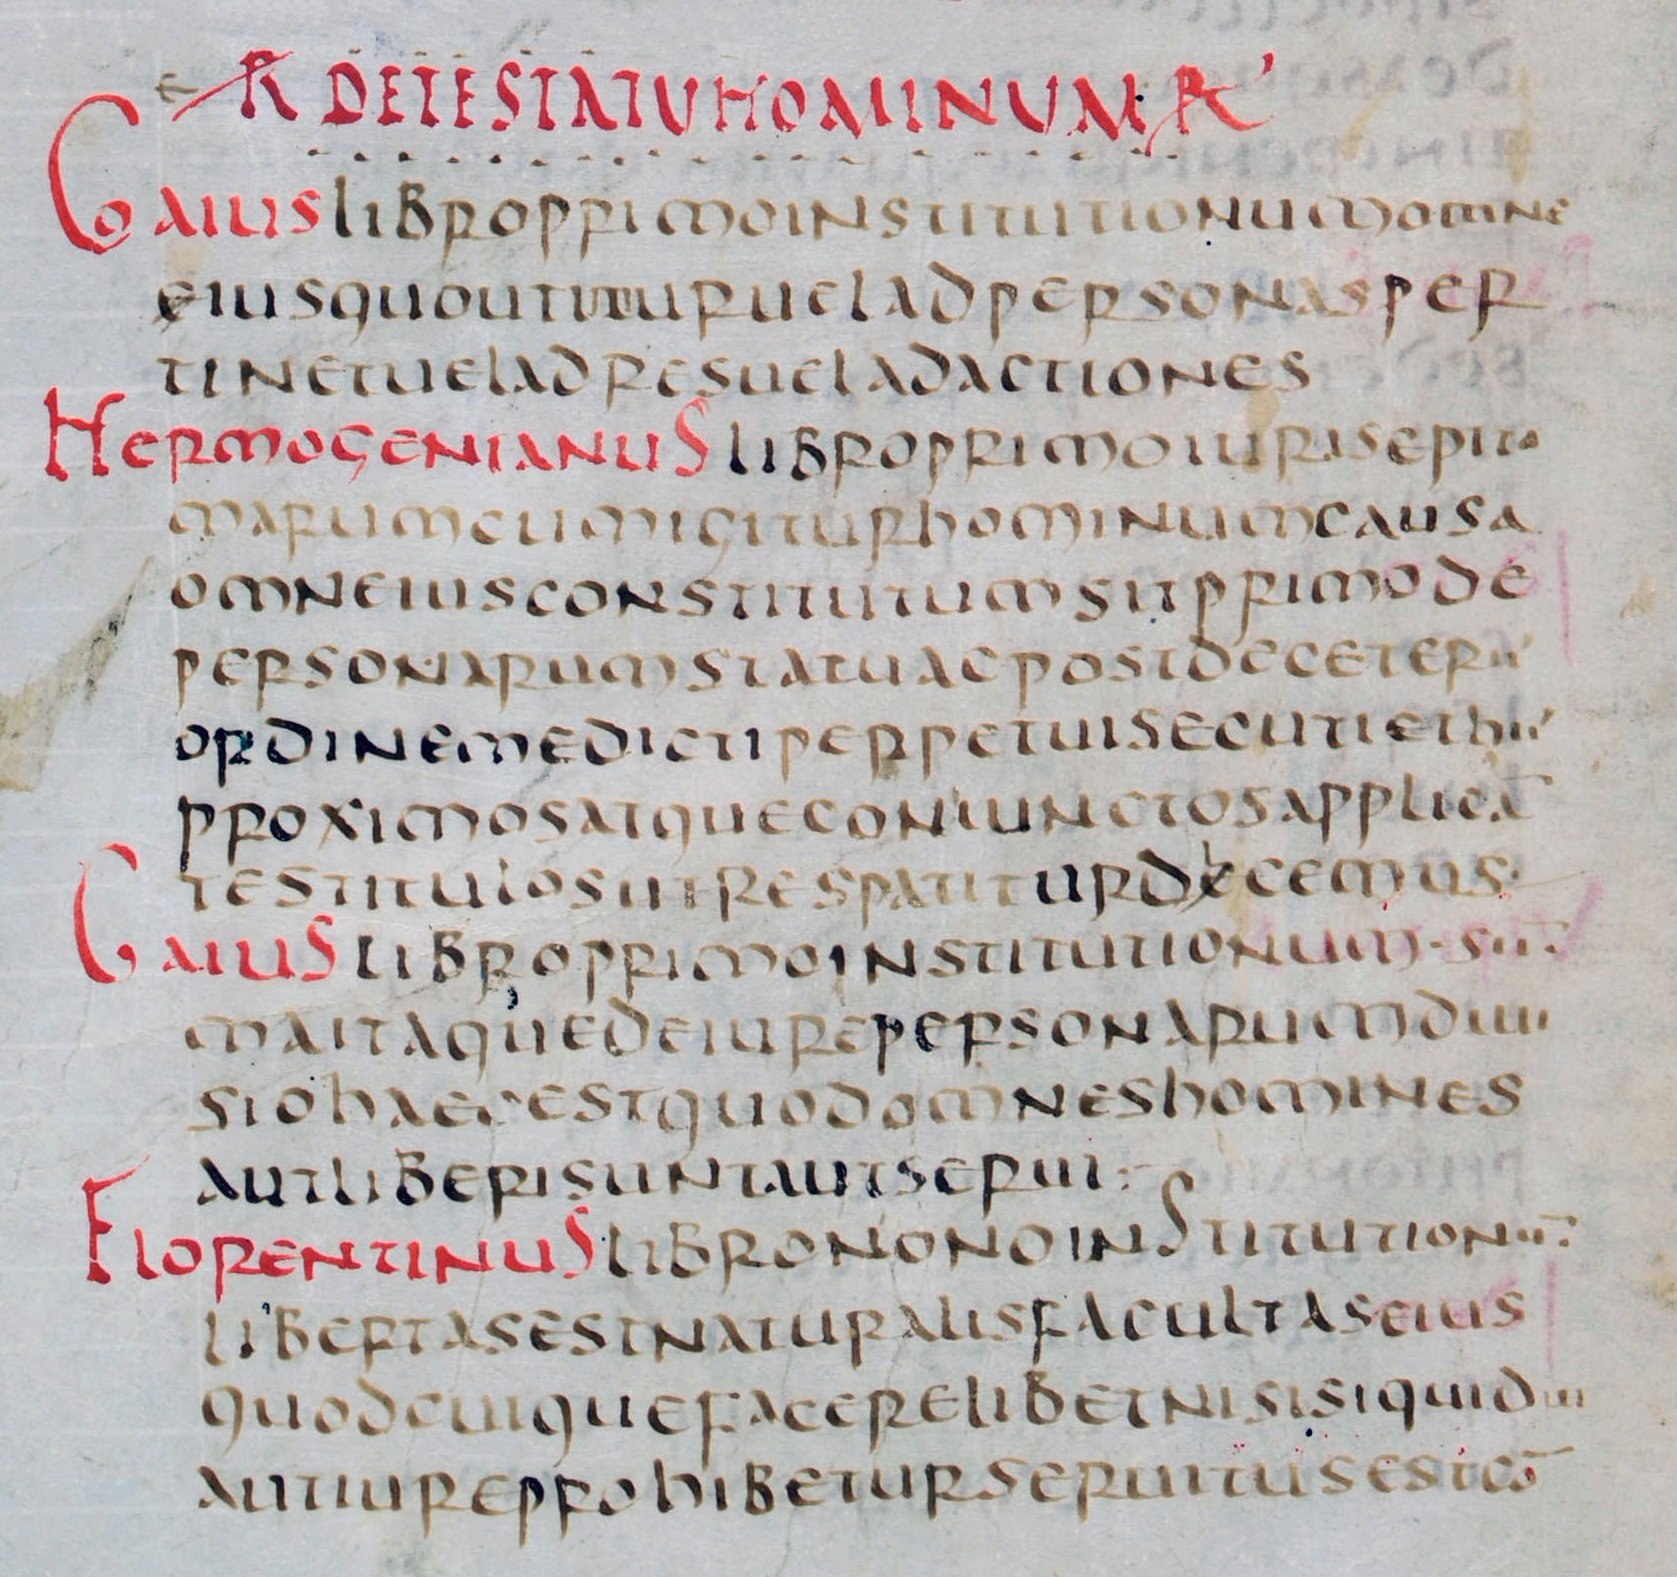 R DE TESTATU HOMINUM R
Gaius libro primo institutionum omne
eius quo utimur uel ad personas per
tinet uel ad res uel ad actiones
Hermogenianus libro primo iuris epito
marum cum igitur hominum causa
omne ius constitutum sit primo de
personarum statu ac post de ceteris
ordinem edicti perpetui secuti et his
proximos atque coniunctos applican̄
tes titulos ut res patitur dicemus·
Gaius libro primo institutionum· sum
ma itaque de iure personarum diui
sio haec est quod omnes homines
aut liberi sunt aut serui:
Florentinus libro nono institutionum:
libertas est naturalis facultas eius
quod cuique facere libet nisi si quid ui
aut iure prohibetur seruitus est cō